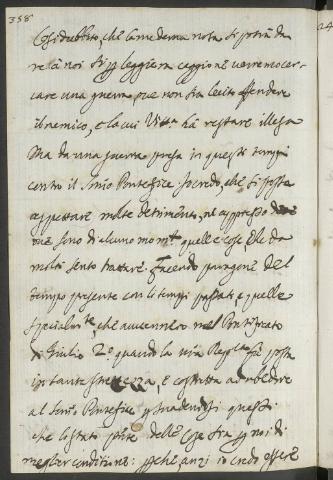 358
Cosi dubbito, che la medema nota si potrà da
re à noi si p leggiera caggione vorremo cer=
care una guerra, oue non sia lecito offendere
il nemico, e la cui Vitta hà restare illesa
Ma da una guerra presa in questi tempi
contro il Somo Pontefice Io credo, che si possa
aspettare molte detrimento, ne appresso di
me sono di alcuno momto quelle cose, che da
molti sento trattare facendo paragone del
tempo presente con li tempi passati e quelle
spetialmte, che auuennero nel Pontificato
di Giulio 2o quando la nra Repca fù posta
in tanta strettezza, e costretta ad ubedire
al Somo Pontefice persuadendosi questi
che lo stato pnte delle Cose sia p noi di
meglior conditione: perche anzi io credo essere